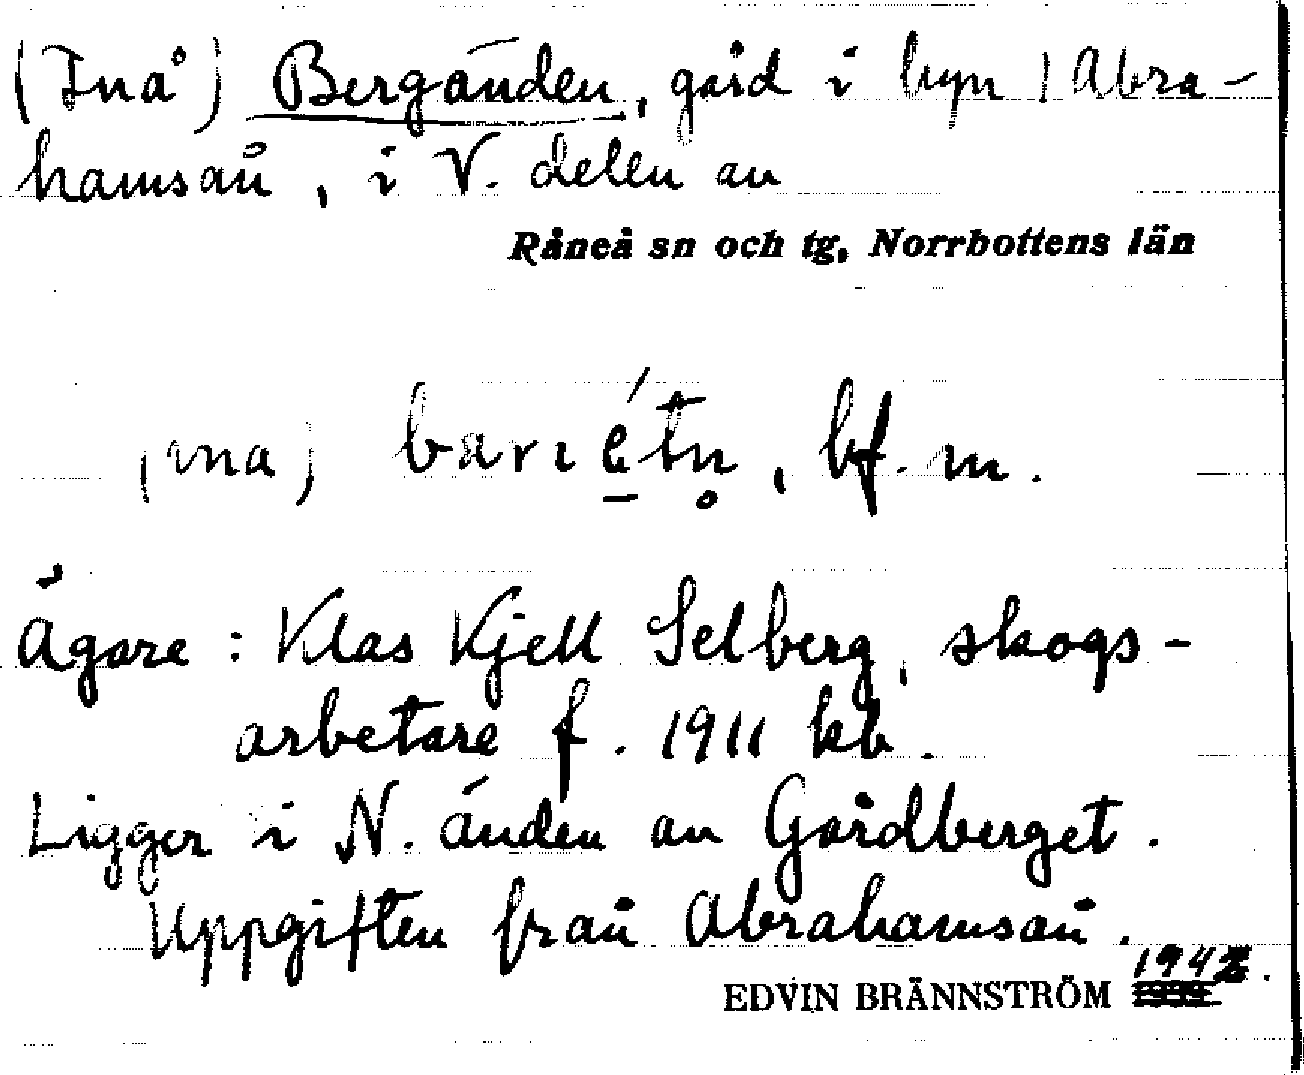 (Inå) Bergänden, gård i byn | Abra-
hamsån, i V. delen av
Råneå sn och tg, Norrbottens län
(ina) barɪétn̥, bf. m.
Ägare: Klas Kjell Selberg, skogs-
arbetare f. 1911 kb.
Ligger i N. änden av Gårdberget.
Uppgiften från Abrahamsån.
EDVIN BRÄNNSTRÖM 1942.